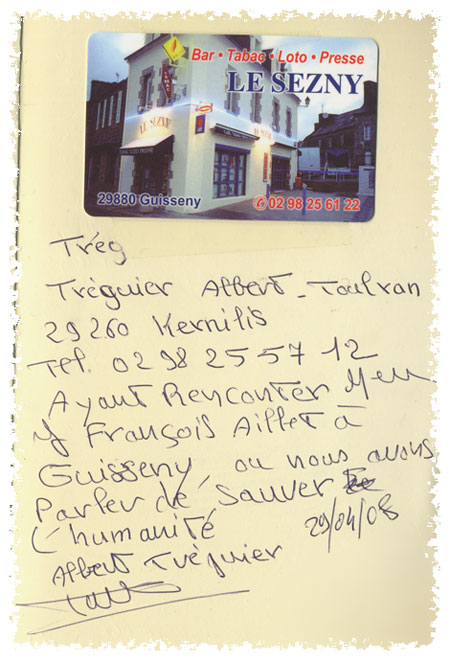 Bar • Tabac • Loto • Presse
LE SEZNY
LE SEZNY
29880 Guisseny
02 98 25 61 22
Trég
Tréguier Albert - Toulran
29260 Kernilis
Tel. 02 98 25 57 12
Ayant Rencontrer
y François Aillet à
Guisseny, ou nous avons
Parler de, Sauver
L'humanité
29/04/08
Albert Tréguier